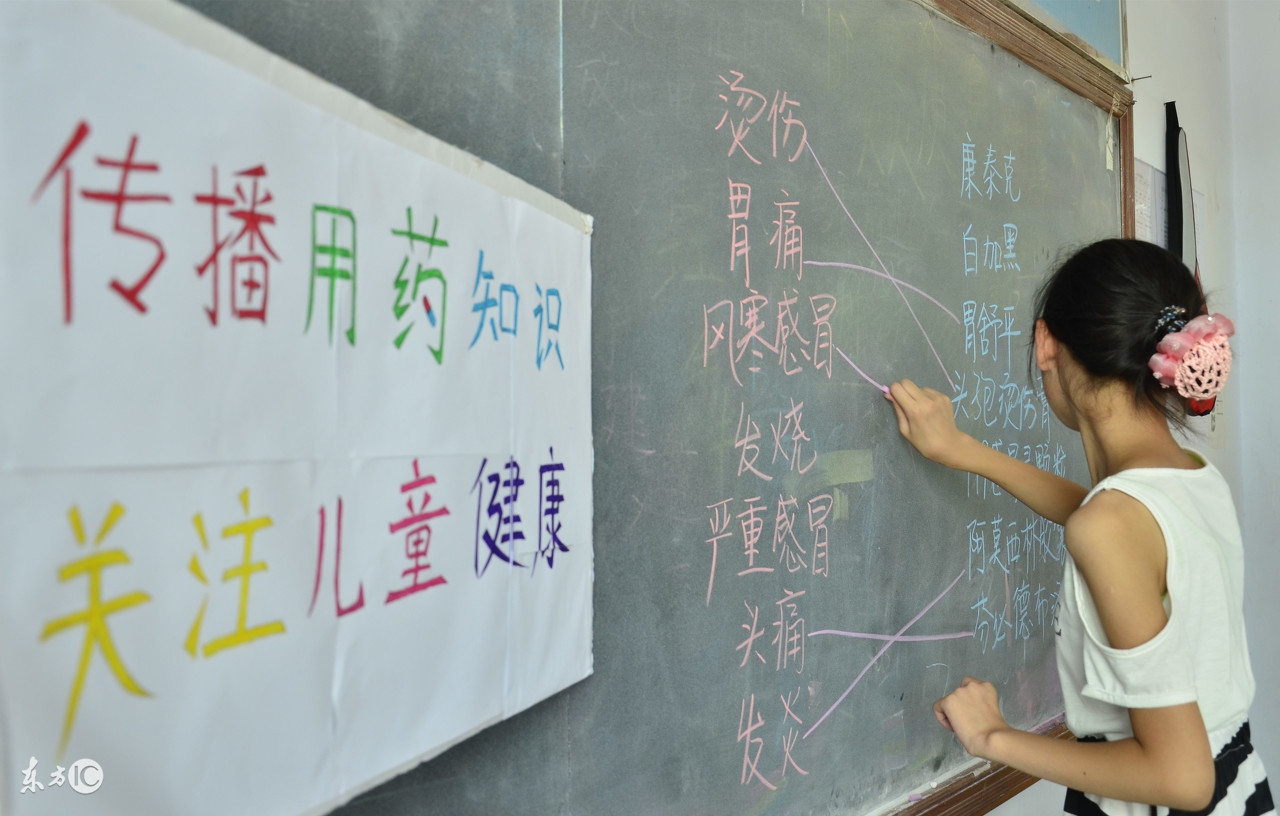 传播用药知识
关注儿童健康
烫伤
胃痛
风寒感冒
发烧
严重感冒
头痛
发火
康泰克
白加黑
胃舒平
头孢烫伤膏
阿莫西林
芬必德布洛
东方IC